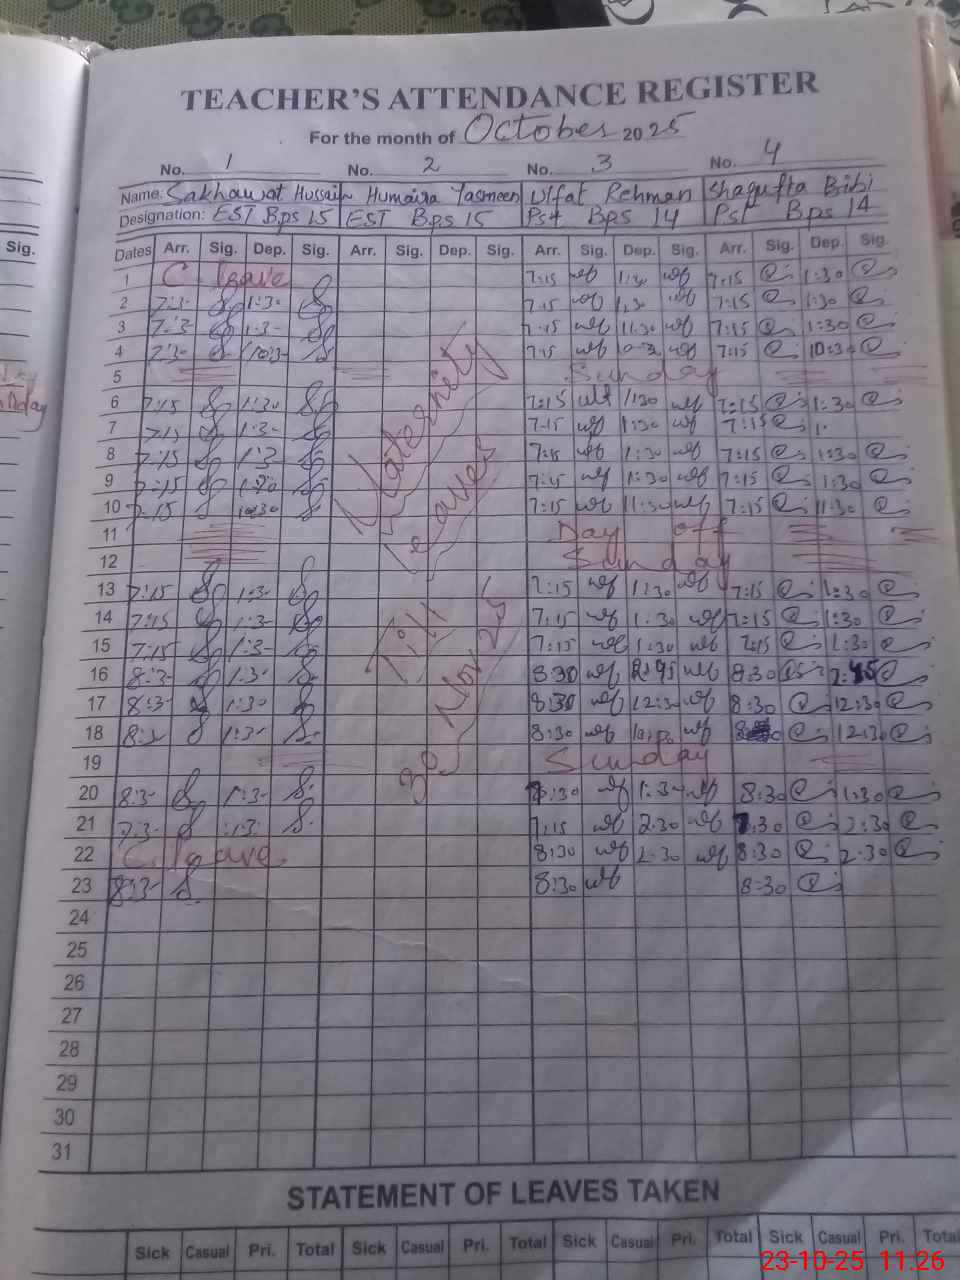 TEACHER'S ATTENDANCE REGISTER
For the month of October 2025
No. 1 No. 2 No. 3 No. 4
Name: Sakhawat Hussain Humaira Yasmeen Ulfat Rehman Shagufta Bibi
Designation: EST Bps 15 EST Bps 15 Pst BPS 14 Pst Bps 14
Sig.
Dates Arr. Sig. Dep. Sig. Arr. Sig. Dep. Sig. Arr. Sig. Dep. Sig. Arr. Sig. Dep. Sig.
1 C. leave 7:15 1:30 7:15 1:30
2 7:3- 1:3- 7:15 1:30 7:15 1:30
3 7:3- 1:3- 7:15 11:30 7:15 1:30
4 7:30 10:3- 7:15 10:3- 7:15 10:30
5 Sunday
6 7:15 1:30 7:15 1:30 7:15 1:30
7 7:15 1:3- 7:15 1:30 7:15 1.
8 7:15 1:3 7:15 1:30 7:15 1:30
9 7:15 1:30 7:15 1:30 7:15 1:30
10 7:15 10:30 7:15 11:30 7:15 11:30
Maternity
Leaves
11 Day off
12 Sunday
13 7:15 1:3- 7:15 1:30 7:15 1:30
14 7:15 1:3- 7:15 1:30 7:15 1:30
15 7:15 1:3- 7:15 1:30 7:15 1:30
Till
30 Nov 25
16 8:3- 1:3- 8:30 8:30 2:45
17 8:3- 1:30 8:30 12:30 8:30 12:30
18 8:3- 1:3- 8:30 12:30
19 Sunday
20 8:3- 1:3- 8:30 1:3- 8:30 1:30
21 7:3- 1:3- 7:15 2:30 7:30 2:30
22 C. leave. 8:30 2:30 8:30 2:30
23 8:3- 8:30 8:30
24
25
26
27
28
29
30
31
STATEMENT OF LEAVES TAKEN
Sick Casual Pri. Total Sick Casual Pri. Total Sick Casual Pri. Total Sick Casual Pri. Total
23-10-25 11.26